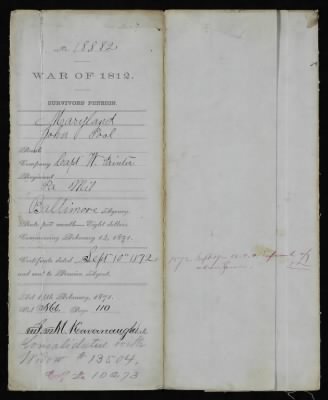 No 18882
WAR OF 1812.
SURVIVORS PENSION.
Maryland
John Pool
Rank
Company Capt W.
Regiment
Pa Mil
Baltimore Agency
Rate per month Eight dollars
Commencing February 14, 1871.
Certificate dated Sept 10th 1872
and sent to Pension Agent.
Act 14th February, 1871.
Vol. Page 110
M. Kavanaugh Clk.
Consolidated with
Widow # 13504.
10273
1872